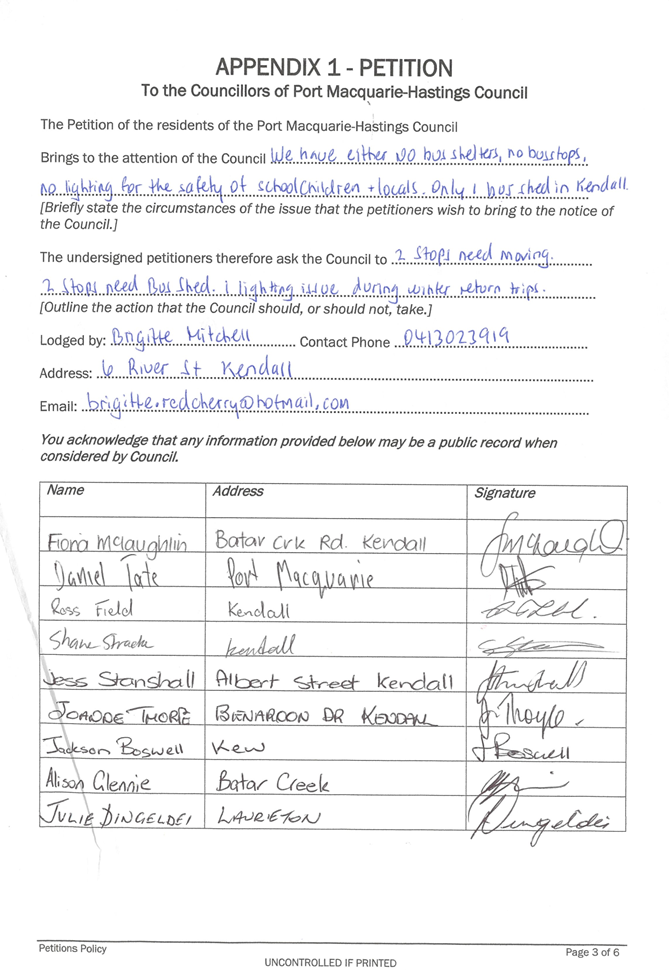 APPENDIX 1 - PETITION
To the Councillors of Port Macquarie-Hastings Council
The Petition of the residents of the Port Macquarie-Hastings Council
Brings to the attention of the Council We have either NO bus shelters, no busstops,
no lighting for the safety of schoolchildren + locals. Only 1 bus shed in Kendall.
[Briefly state the circumstances of the issue that the petitioners wish to bring to the notice of
the Council.]
The undersigned petitioners therefore ask the Council to 2 stops need moving.
2 stops need Bus Shed. 1 lighting issue during winter return trips.
[Outline the action that the Council should, or should not, take.]
Lodged by: Brigitte Mitchell Contact Phone 0413023919
Address: 6 River St Kendall
Email: brigitte.redcherry@hotmail.com
You acknowledge that any information provided below may be a public record when
considered by Council.
Name Address Signature
Fiona McLaughlin Batar Crk Rd. Kendall
Daniel Tate Port Macquarie
Ross Field Kendall
Shane Kendall
Jess Stanshall Albert Street Kendall
JOANNE THORPE BENAROON DR KENDAL
Jackson Boswell Kew J Boswell
Alison Glennie Batar Creek
JULIE DINGELDEI LAURIETON Dingeldei
Petitions Policy Page 3 of 6
UNCONTROLLED IF PRINTED